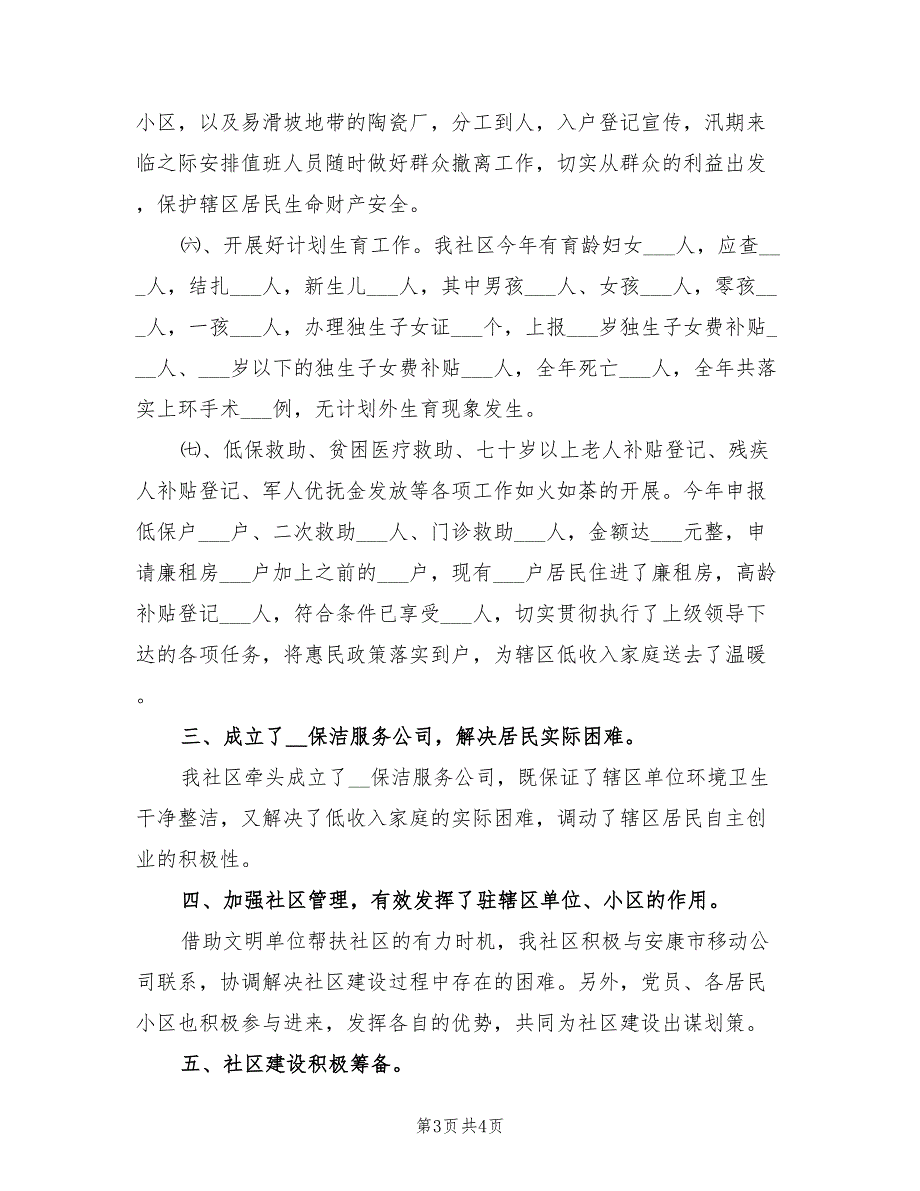 小区，以及易滑坡地带的陶瓷厂，分工到人，入户登记宣传，汛期来
临之际安排值班人员随时做好群众撤离工作，切实从群众的利益出发
，保护辖区居民生命财产安全。
㈥、开展好计划生育工作。我社区今年有育龄妇女___人，应查__
_人，结扎___人，新生儿___人，其中男孩___人、女孩___人，零孩__
_人，一孩___人，办理独生子女证___个，上报___岁独生子女费补贴_
__人、___岁以下的独生子女费补贴___人，全年死亡___人，全年共落
实上环手术___例，无计划外生育现象发生。
㈦、低保救助、贫困医疗救助、七十岁以上老人补贴登记、残疾
人补贴登记、军人优抚金发放等各项工作如火如荼的开展。今年申报
低保户___户、二次救助___人、门诊救助___人，金额达___元整，申
请廉租房___户加上之前的___户，现有___户居民住进了廉租房，高龄
补贴登记___人，符合条件已享受___人，切实贯彻执行了上级领导下
达的各项任务，将惠民政策落实到户，为辖区低收入家庭送去了温暖
。
三、成立了__保洁服务公司，解决居民实际困难。
我社区牵头成立了__保洁服务公司，既保证了辖区单位环境卫生
干净整洁，又解决了低收入家庭的实际困难，调动了辖区居民自主创
业的积极性。
四、加强社区管理，有效发挥了驻辖区单位、小区的作用。
借助文明单位帮扶社区的有力时机，我社区积极与安康市移动公
司联系，协调解决社区建设过程中存在的困难。另外，党员、各居民
小区也积极参与进来，发挥各自的优势，共同为社区建设出谋划策。
五、社区建设积极筹备。
第3页共4页